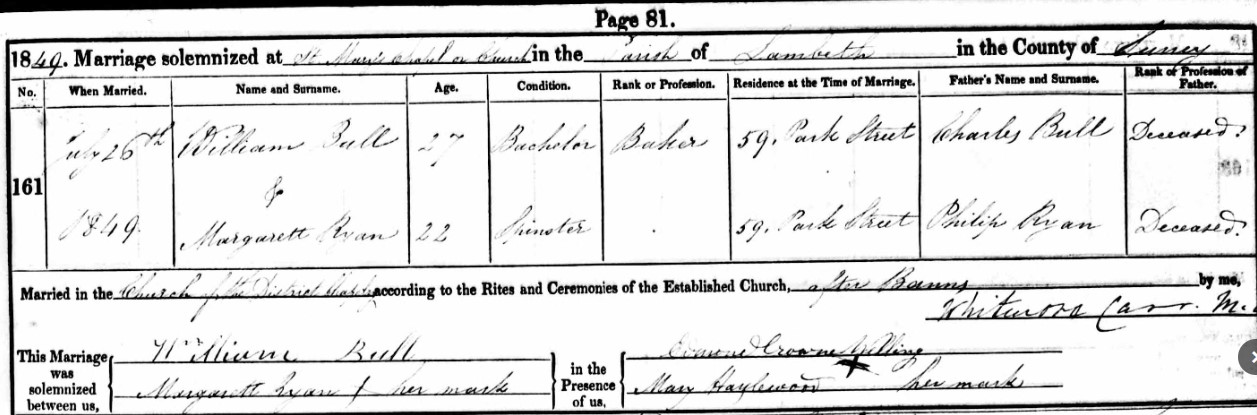 Page 81.
1849. Marriage solemnized at St Mary's Chapel or Church in the Parish of Lambeth in the County of Surrey
No. When Married. Name and Surname. Age. Condition. Rank or Profession. Residence at the Time of Marriage. Father's Name and Surname. Rank or Profession of Father.
161 July 26th William Bull 27 Bachelor Baker 59. Park Street Charles Bull Deceased.
&
1849. Margarett Ryan 22 Spinster 59. Park Street Philip Ryan Deceased.
Married in the Church of the District according to the Rites and Ceremonies of the Established Church, after Banns by me,
Whitmore Carr. M.
This Marriage was solemnized between us, William Bull
Margarett Ryan her mark
in the Presence of us, Willing
Mary Haylewood X her mark